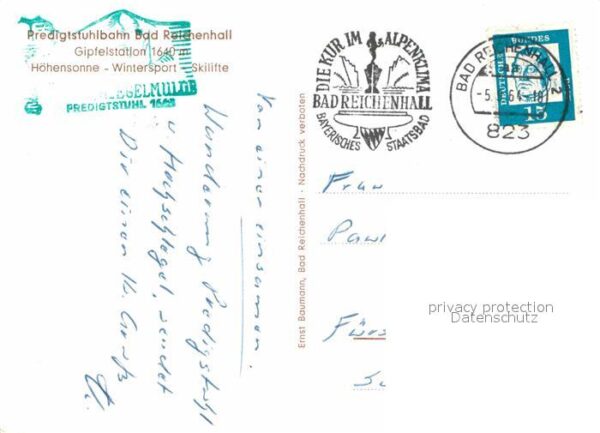 Predigtstuhlbahn Bad Reichenhall
Gipfelstation 1640 m
Höhensonne - Wintersport - Skilifte
EGELMULDE
PREDIGTSTUHL
Von einer einsamen
Wanderung Predigtstuhl
u. Hochschlegel, sendet
Dir einen lb. Gruß
Ernst Baumann, Bad Reichenhall - Nachdruck verboten
DIE KUR IM ALPENKLIMA
BAD REICHENHALL
BAYERISCHES STAATSBAD
BAD REICHENHALL 2
-5. 64-18
823
DEUTSCHE BUNDES
15
Frau
Paul
Fürs
privacy protection
Datenschutz